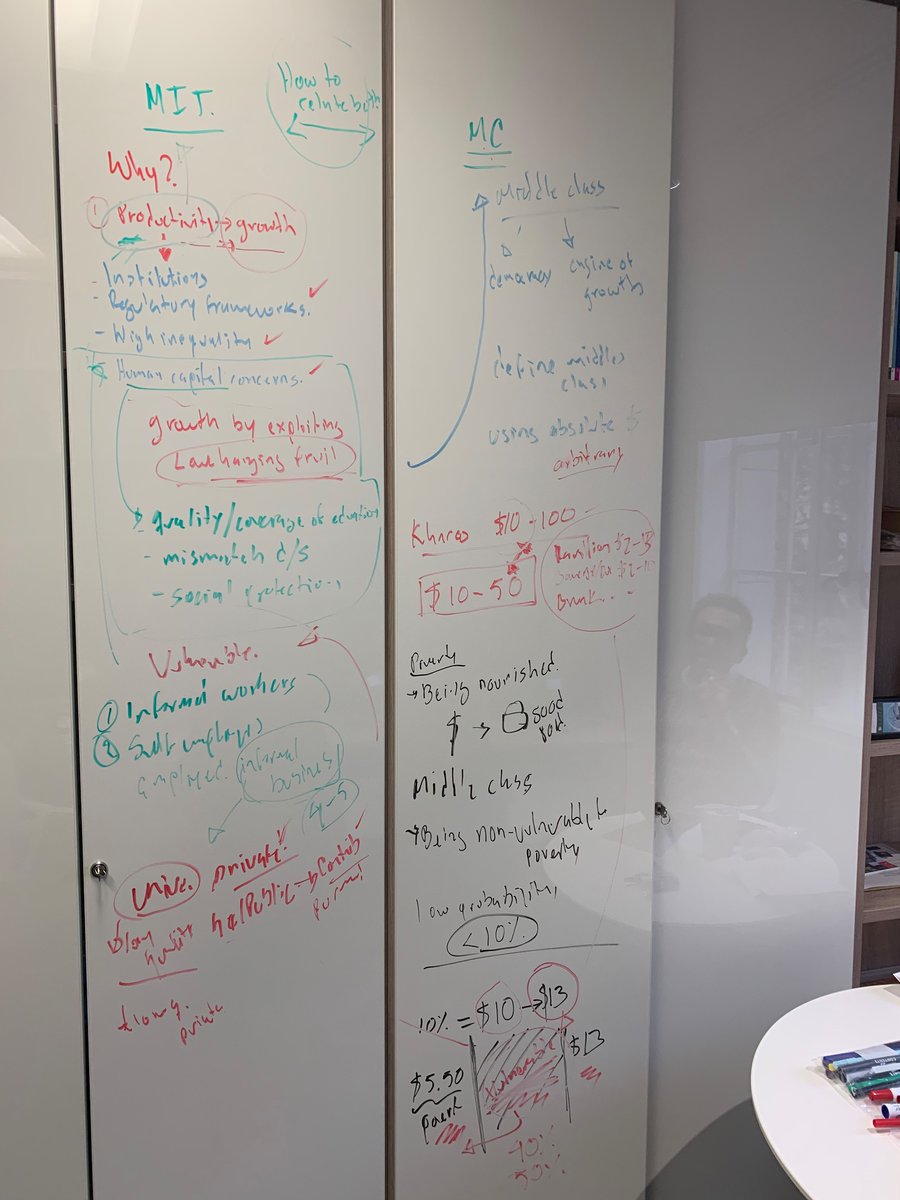 MIT.
How to
relate both
Why?
1 Productivity → growth
- Institutions
- Regulatory frameworks.
- High inequality
Human capital concerns.
growth by exploiting
Low hanging fruit
quality/coverage of education
- mismatch d/s
- social protection
Vulnerable.
① Informal workers
② Self
employed.
informal
business
4-5
Unive.
private
Public →
quality
private
MC
Middle class
democracy
engine of
growth
define middle
class
using absolute $
arbitrary
Kharas $10-100
$10-50
Ravallion $2-13
Poverty
→ Being nourished.
$ →
food
Middle class
→ Being non-vulnerable to
poverty
low probability
<10%
10% = $10 → $13
Vulnerable
$13
$5.50
poor
40%
50%